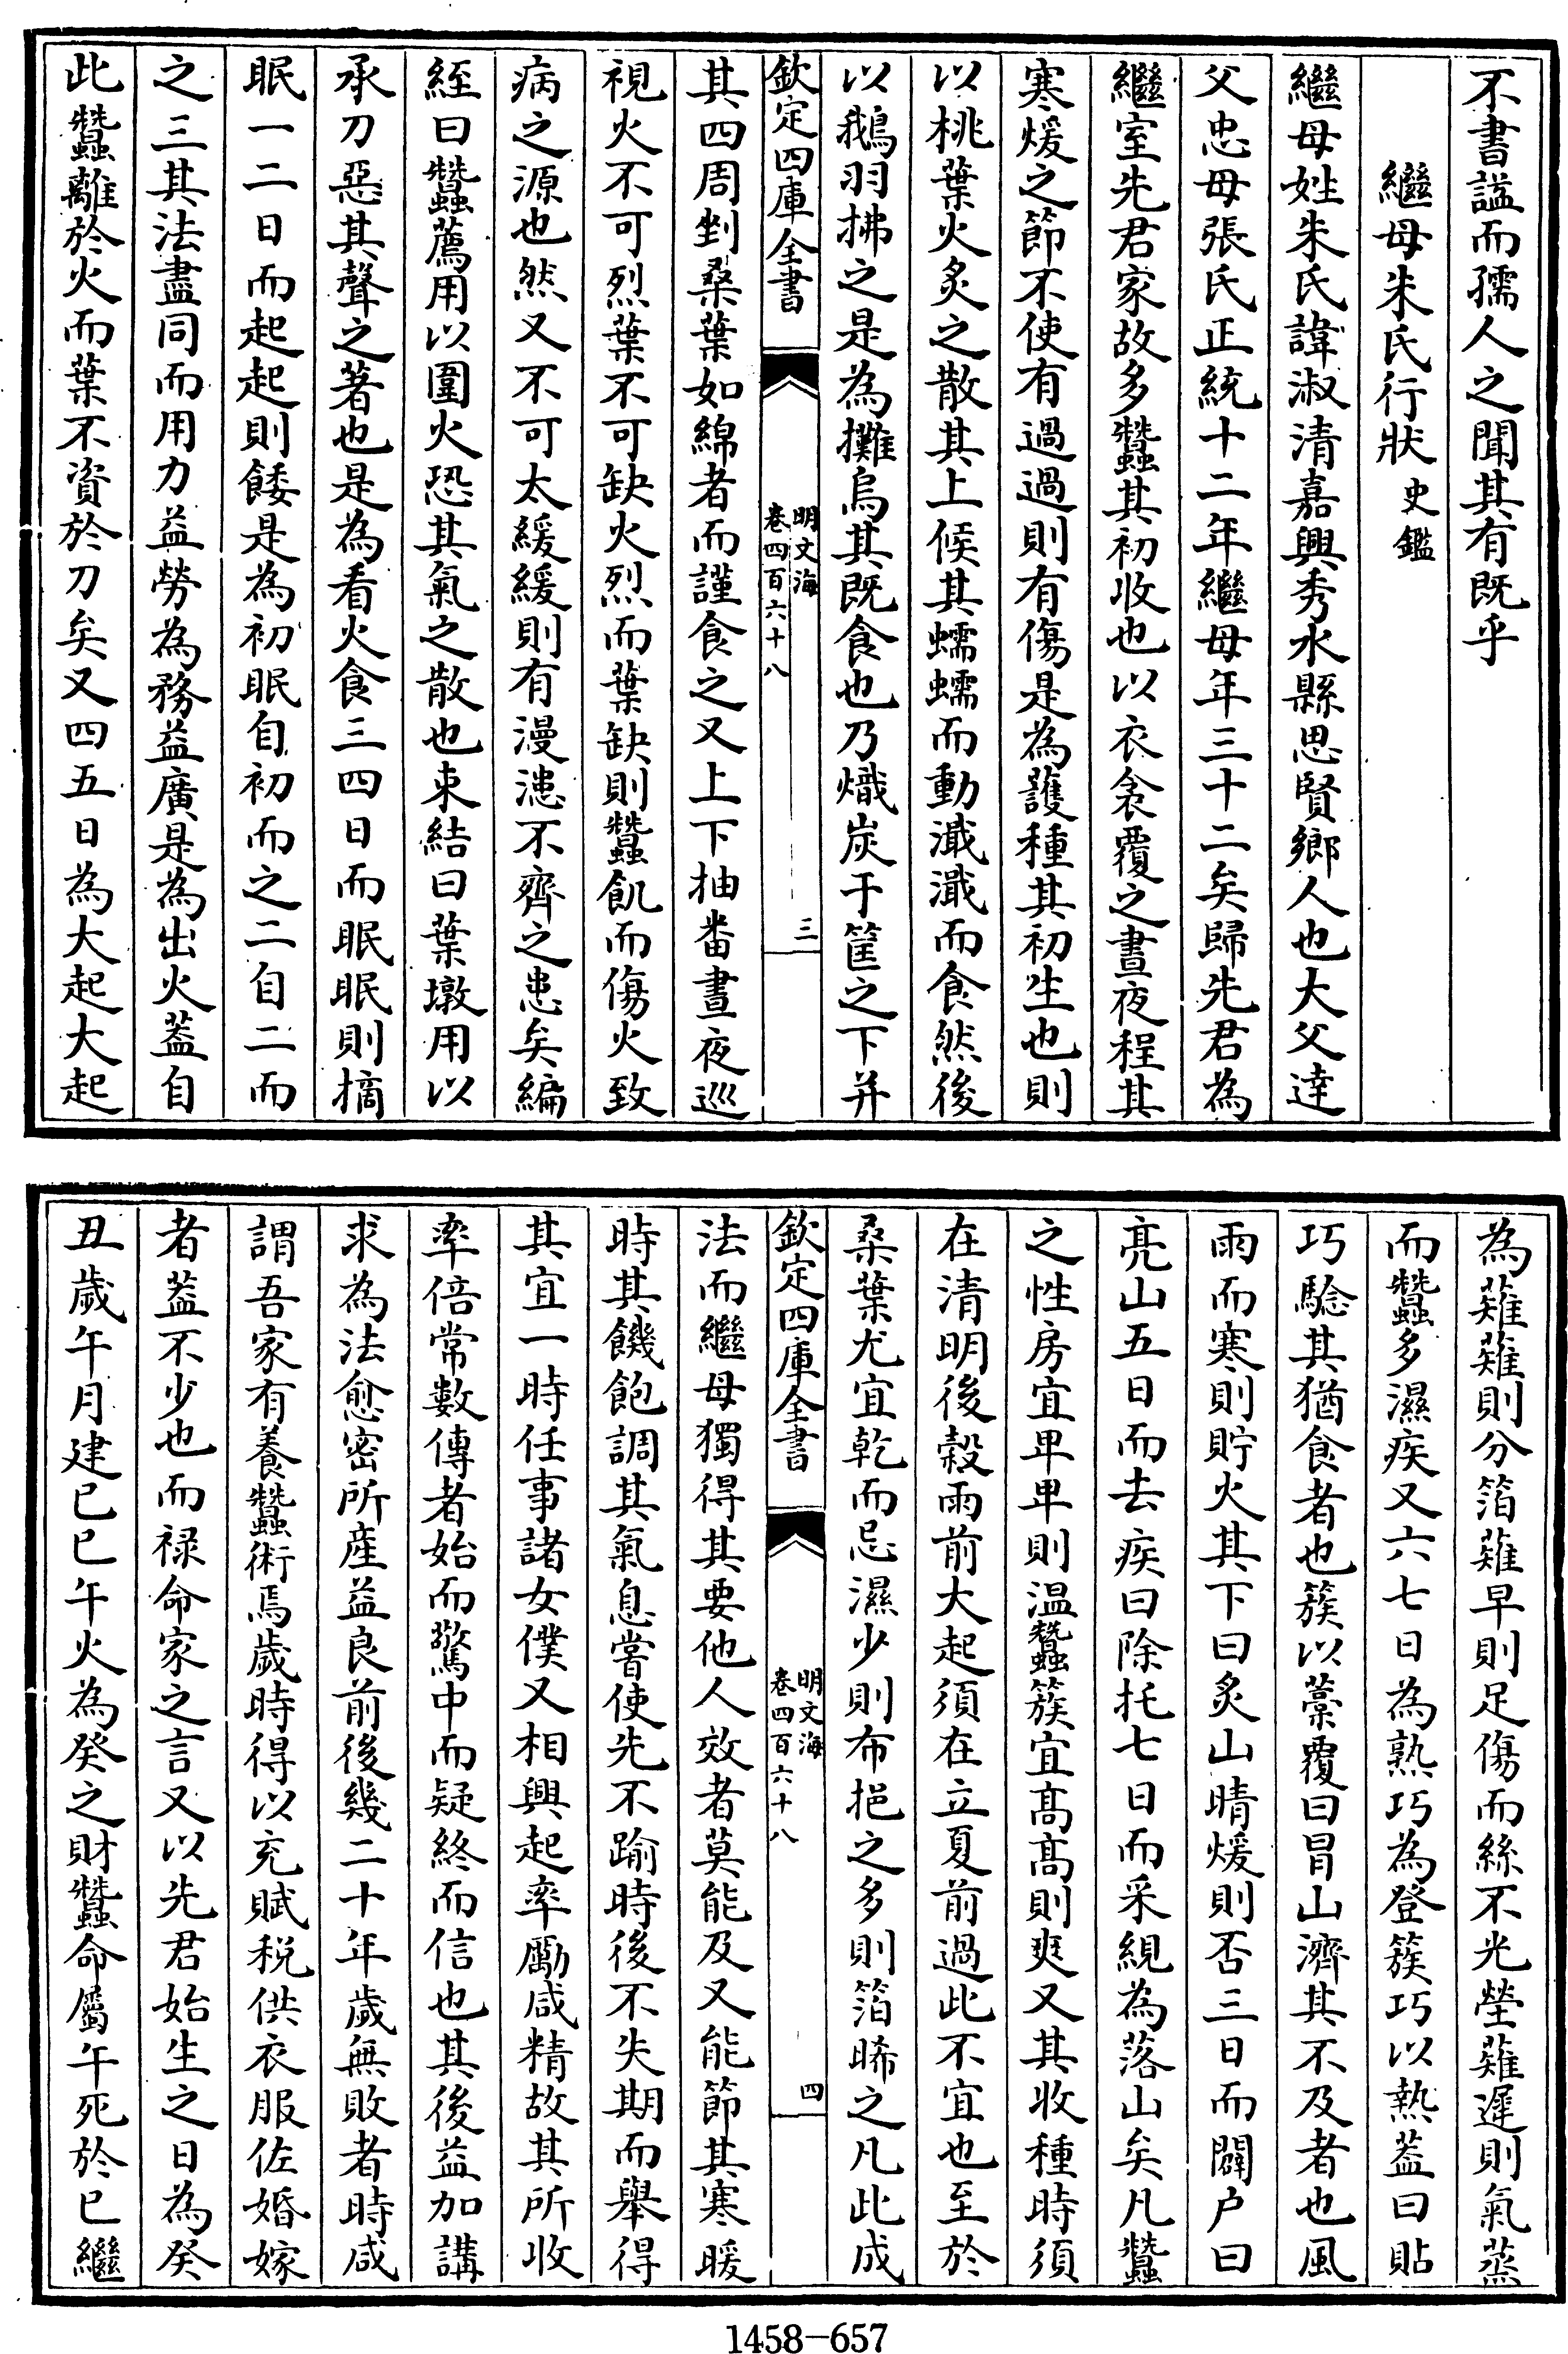 不書謚而孺人之聞其有既乎
繼母朱氏行狀 史鑑
繼母姓朱氏諱淑清嘉興秀水縣思賢鄉人也大父達
父忠母張氏正統十二年繼母年三十二矣歸先君為
繼室先君家故多蠶其初收也以衣衾覆之晝夜程其
寒煖之節不使有過過則有傷是為護種其初生也則
以桃葉火炙之散其上候其蠕蠕而動濈濈而食然後
以鵝羽拂之是為攤烏其既食也乃熾炭于筐之下并
欽定四庫全書
明文海
卷四百六十八
三
其四周剉桑葉如綿者而謹食之又上下抽畨晝夜巡
視火不可烈葉不可缺火烈而葉缺則蠶飢而傷火致
病之源也然又不可太緩緩則有漫漶不齊之患矣編
絰曰蠶薦用以圍火恐其氣之散也束結曰葉墩用以
承刀惡其聲之著也是為看火食三四日而眠眠則摘
眠一二日而起起則餧是為初眠自初而之二自二而
之三其法盡同而用力益勞為務益廣是為出火葢自
此蠶離於火而葉不資於刀矣又四五日為大起大起
為薙薙則分箔薙早則足傷而絲不光瑩薙遲則氣蒸
而蠶多濕疾又六七日為熟巧為登簇巧以熱葢曰貼
巧驗其猶食者也簇以藁覆曰冒山濟其不及者也風
雨而寒則貯火其下曰炙山晴煖則否三日而闢户曰
亮山五日而去疾曰除托七日而采絸為落山矣凡蠶
之性房宜卑卑則温蠶簇宜髙髙則爽又其收種時須
在清明後穀雨前大起須在立夏前過此不宜也至於
桑葉尤宜乾而忌濕少則布挹之多則箔晞之凡此成
欽定四庫全書
明文海
卷四百六十八
四
法而繼母獨得其要他人效者莫能及又能節其寒暖
時其饑飽調其氣息甞使先不踰時後不失期而舉得
其宜一時任事諸女僕又相興起率勵咸精故其所收
率倍常數傳者始而驚中而疑終而信也其後益加講
求為法愈密所産益良前後幾二十年歲無敗者時咸
謂吾家有養蠶術焉歲時得以充賦税供衣服佐婚嫁
者葢不少也而禄命家之言又以先君始生之日為癸
丑歲午月建巳巳午火為癸之財蠶命屬午死於巳繼
1458-657